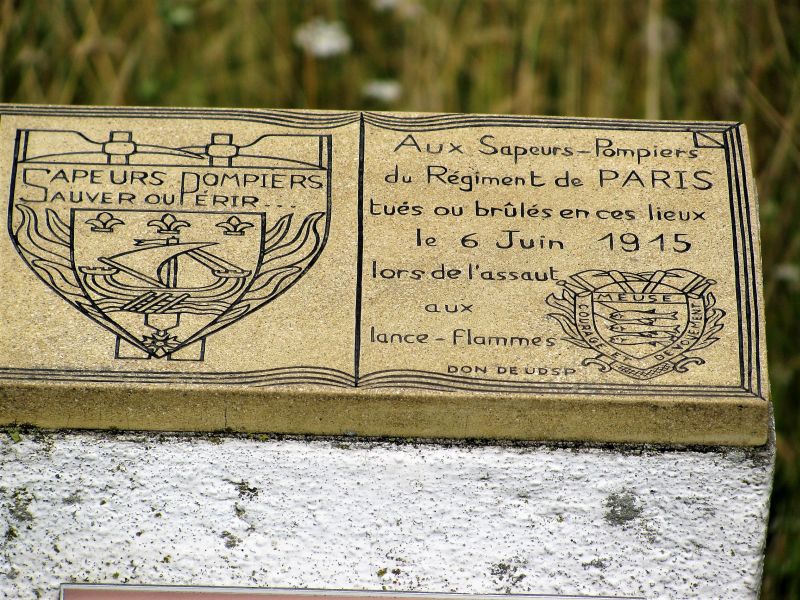 SAPEURS POMPIERS
SAUVER OU PÉRIR...
AUX SAPEURS-POMPIERS
du RÉGIMENT de PARIS
tués ou brûlés en ces lieux
le 6 Juin 1915
lors de l'assaut
aux
lance-flammes
MEUSE
COURAGE ET DEVOUEMENT
DON DE UDSP